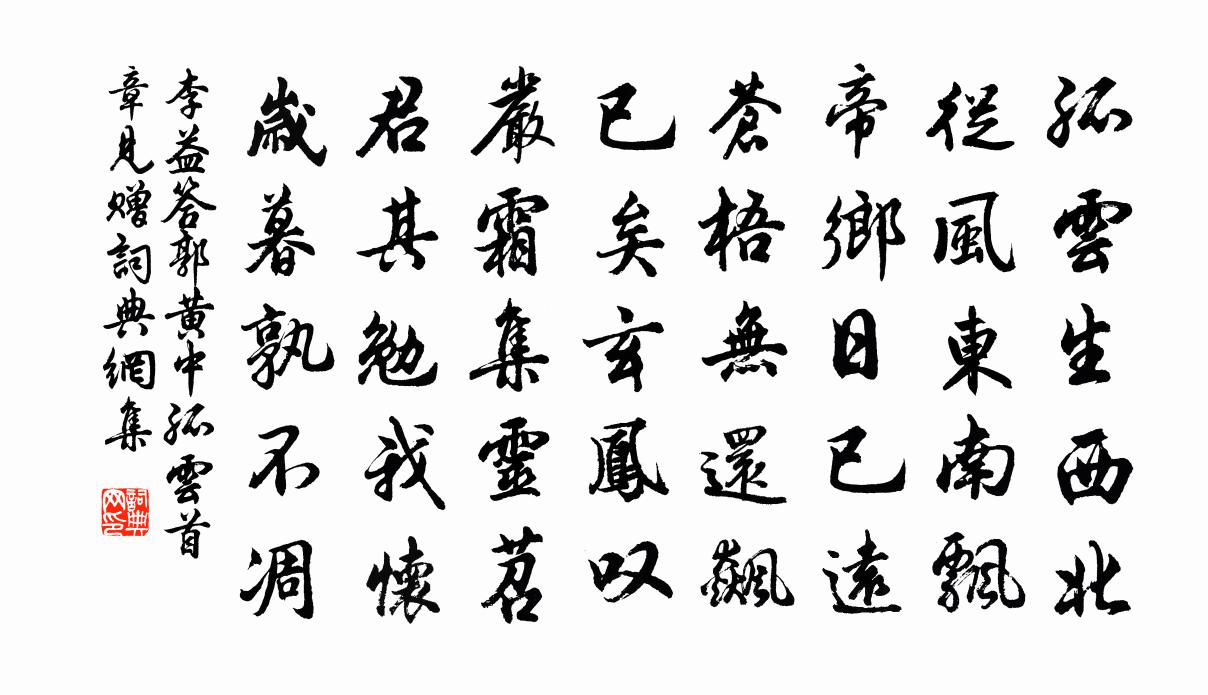 孤雲生西北
從風東南飄
帝鄉日已遠
蒼梧無還飆
已矣玄鳳叹
嚴霜集靈苕
君其勉我懷
歲暮孰不凋
李益答郭黄中孤雲首
章見赠詞典網集
詞典网印